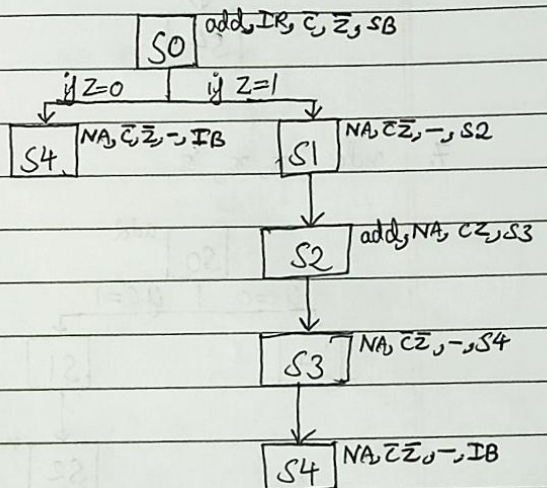 S0 add, IR, C̅, Z̅, SB
if Z=0 if Z=1
S4 NA, C̅, Z̅, -, IB
S1 NA, C̅Z̅, -, S2
S2 add, NA, CZ, S3
S3 NA, C̅Z̅, -, S4
S4 NA, C̅Z̅, -, IB